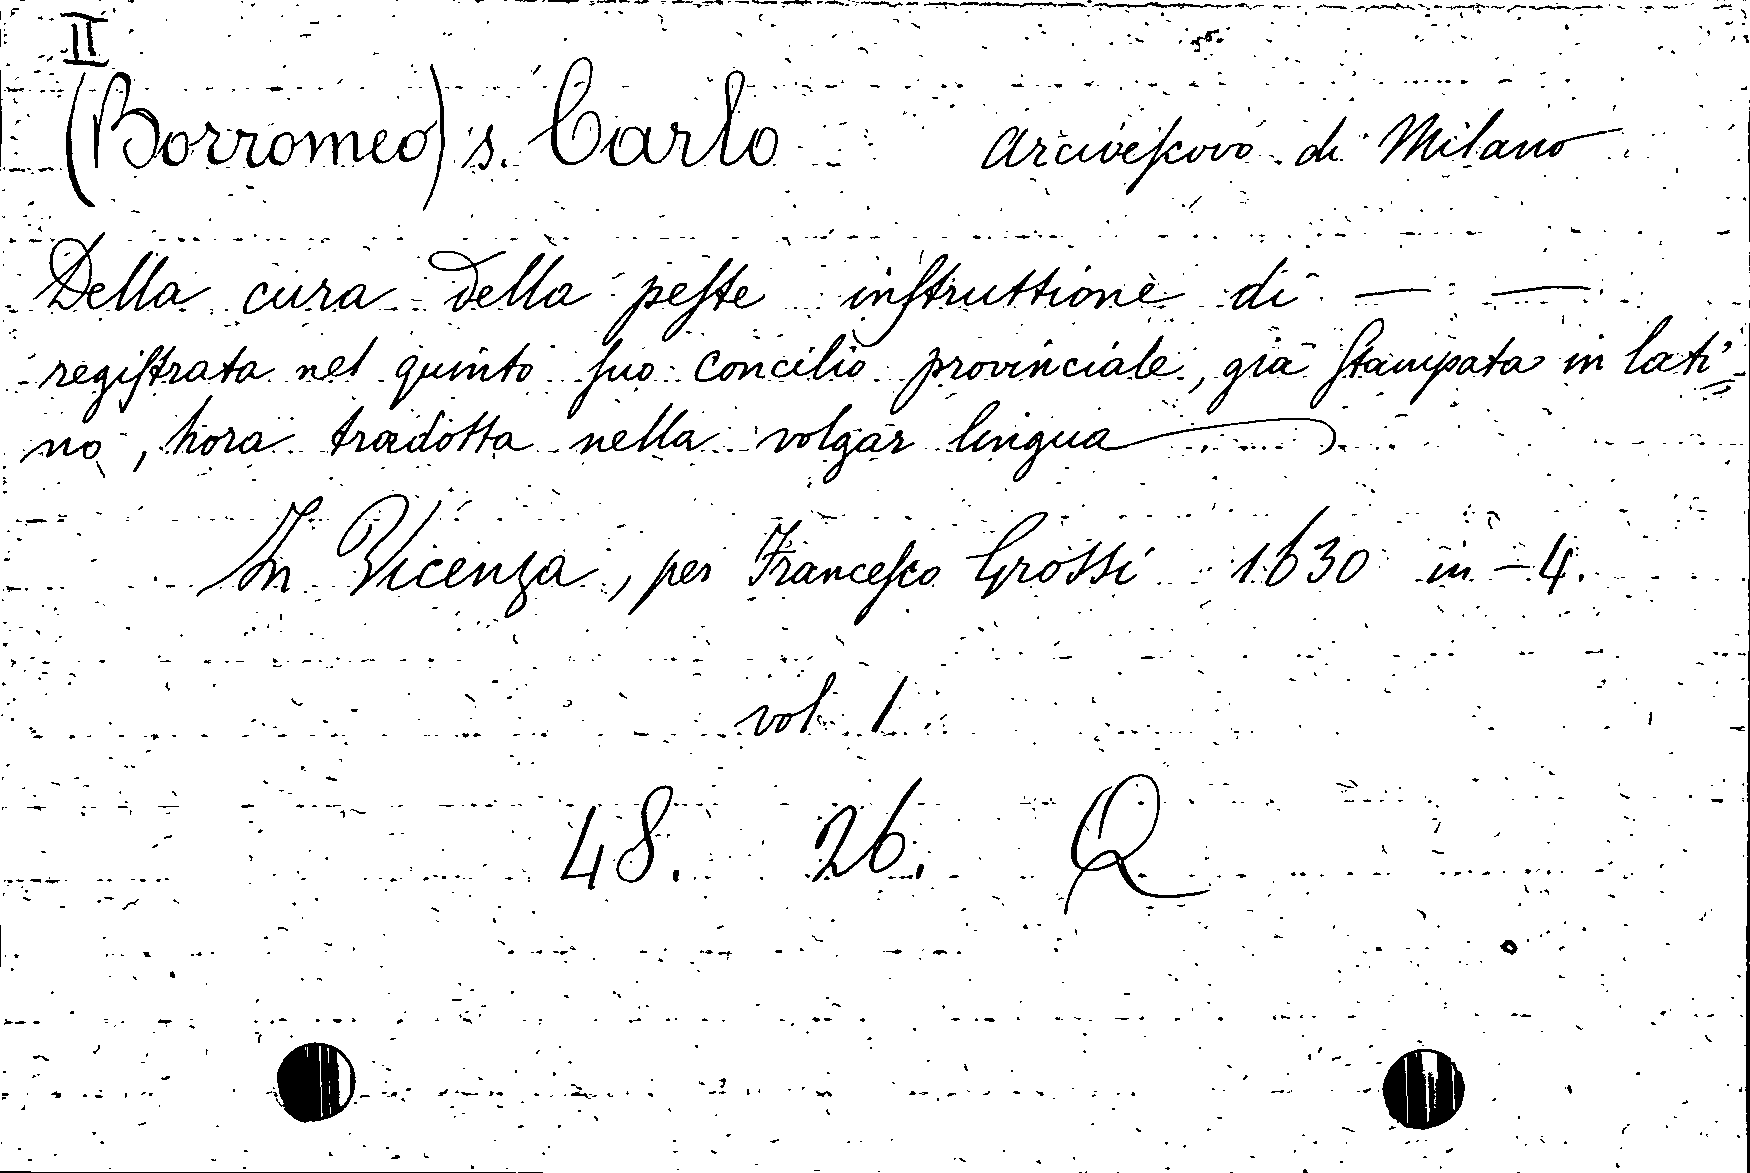 II
(Borromeo) s. Carlo Arciveſcovo di Milano
Della cura della peſte inſtruttione di — —
regiſtrata nel quinto ſuo concilio provinciale, già ſtampata in lati=
no, hora tradotta nella volgar lingua
In Vicenza, per Franceſco Grossi 1630 in-4.
vol. 1
48. 26. Q